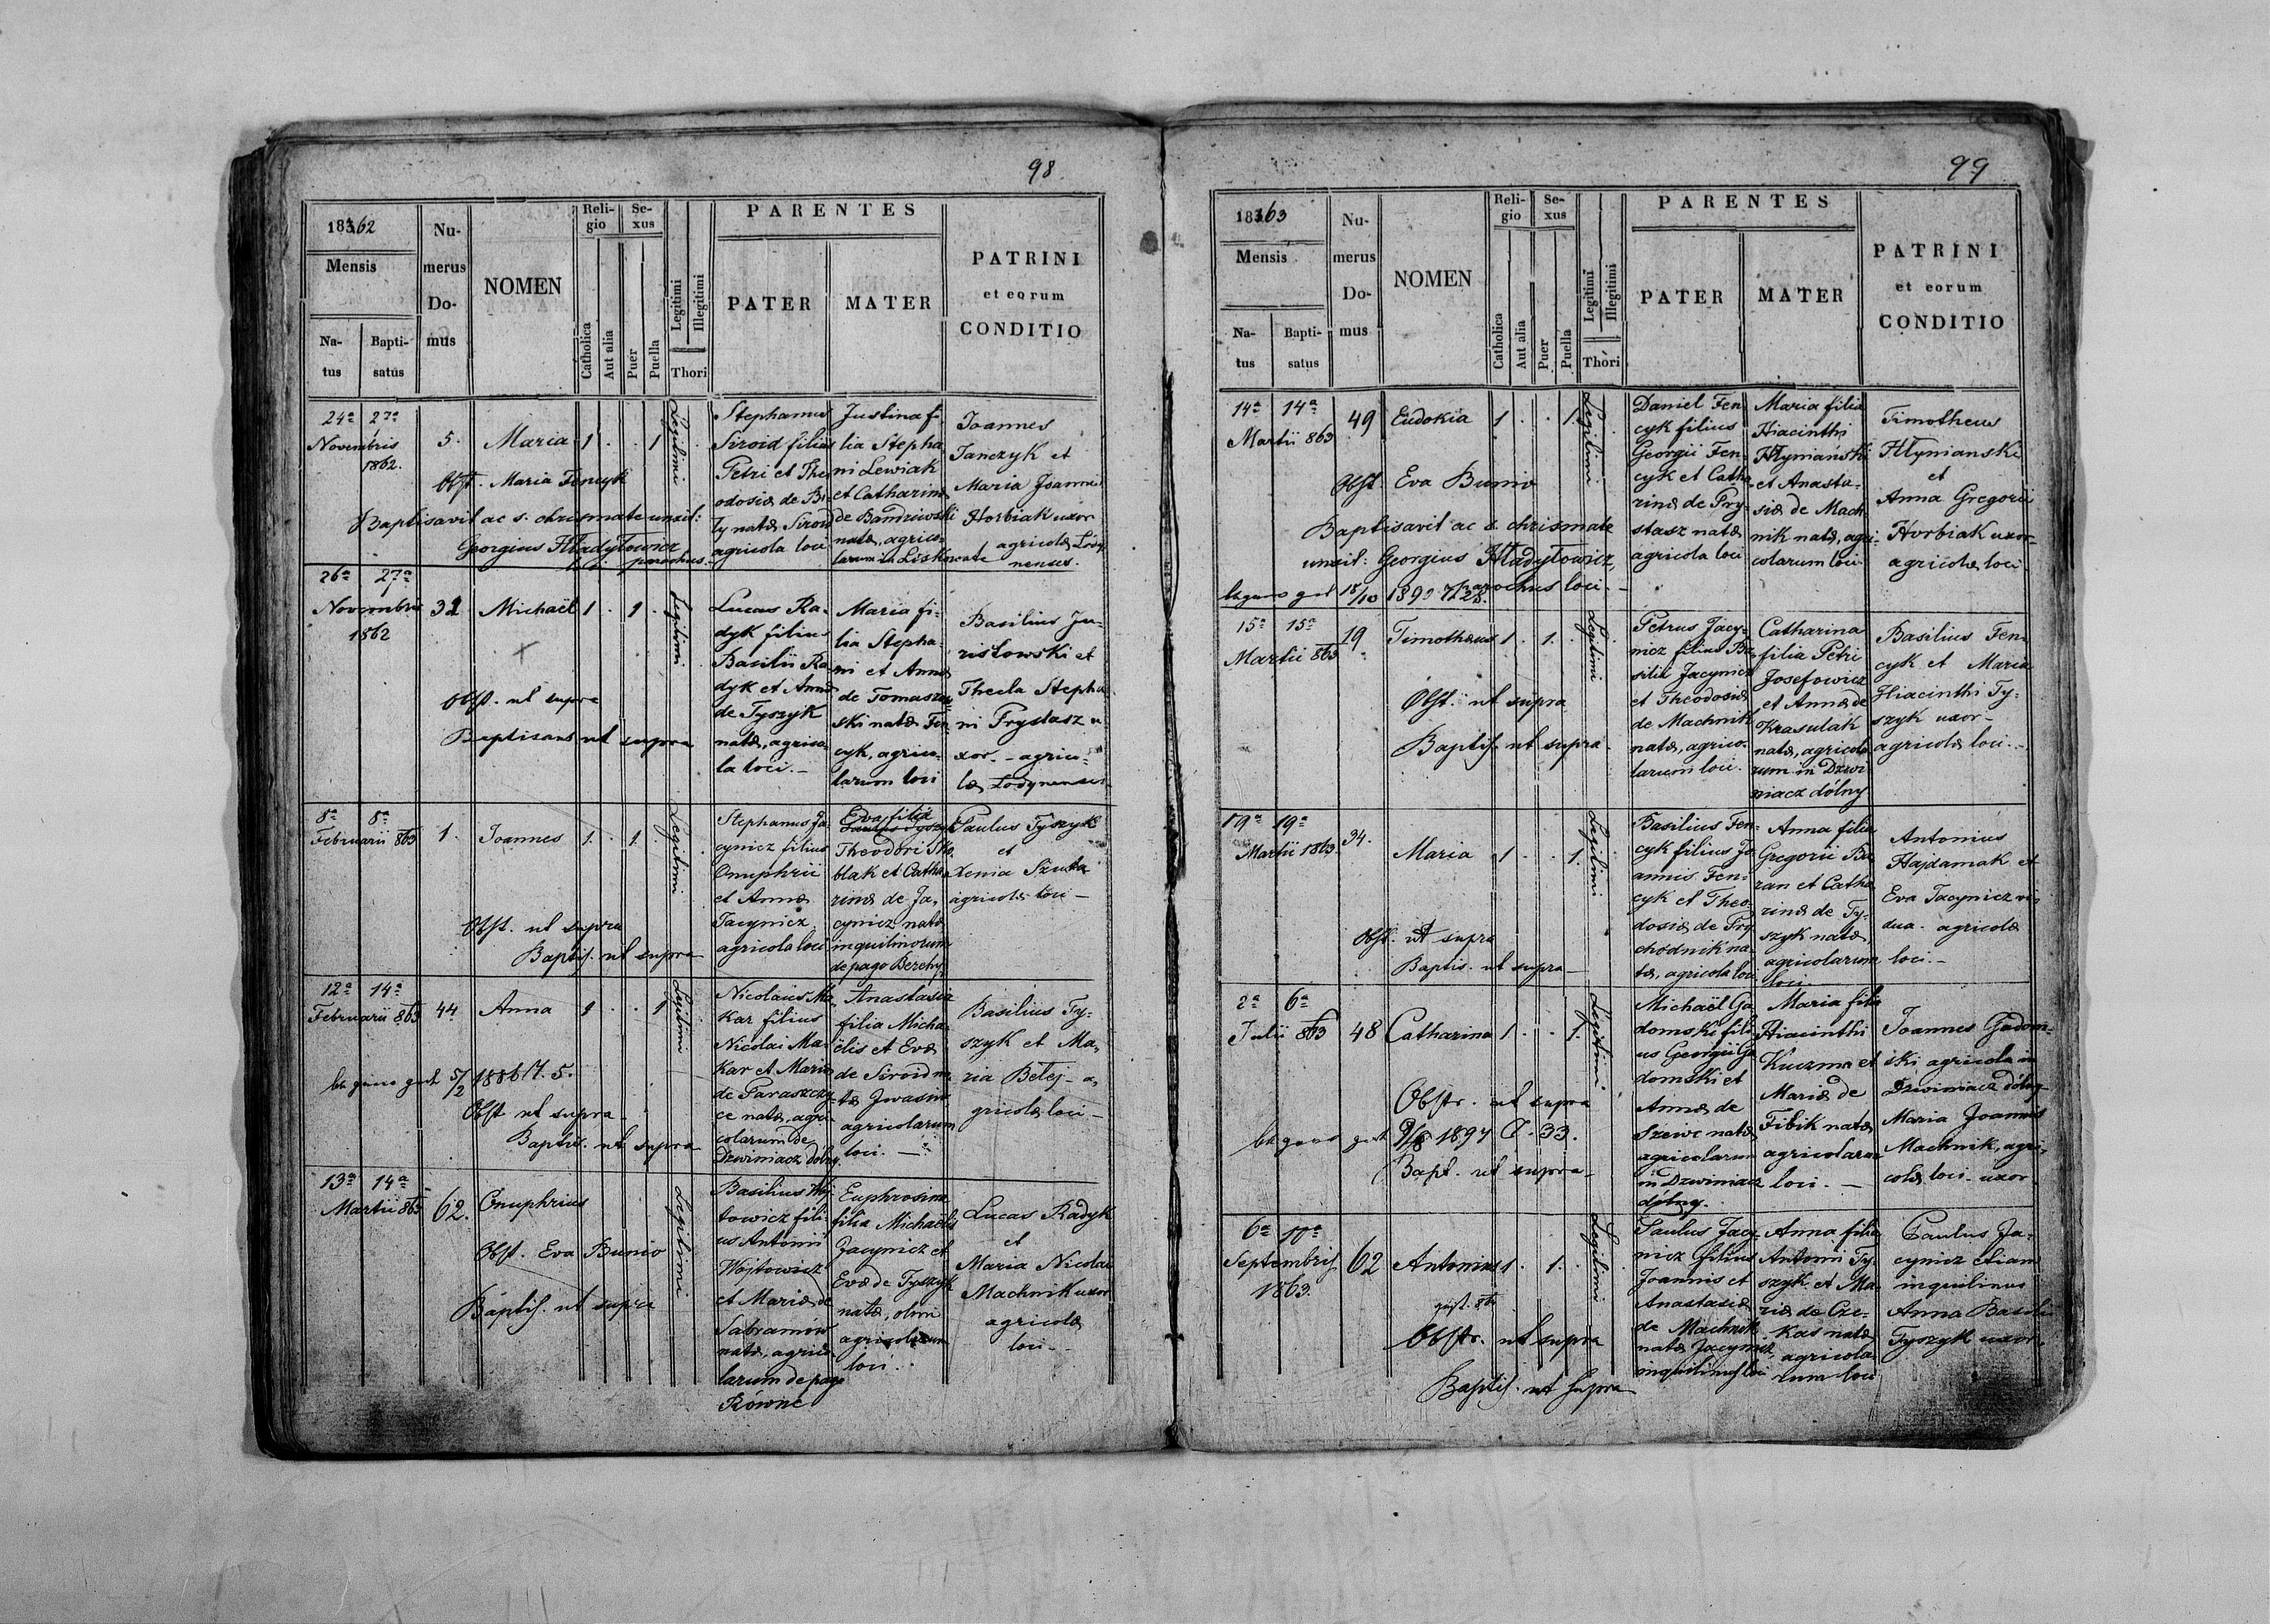 98
183.62
Mensis
Na-
tus
Bapti-
satus
Nu-
merus
Do-
mus
NOMEN
Reli-
gio
Catholica
Aut alia
Se-
xus
Puer
Puella
Legitimi
Illegitimi
Thori
PARENTES
PATER
MATER
PATRINI
et eorum
CONDITIO
24a 27a
Novembris
1862.
5.
Maria
1 . . 1
Legitimi
Obst. Maria Fencyk
Baptisavit ac s. chrismate unxit:
Georgius Hładyłowicz
parochus.
Stephanus
Siroid filius
Petri et The
odosiæ de Bi-
ły natæ, Siroid
agricola loci
Justina fi-
lia Stepha
ni Lewiak
et Catharinæ
de Bandrowski
natæ, agrico-
larum in Liskowate
Joannes
Janczyk et
Maria Joannis
Horbiak uxor
agricolæ Łody
nenses.
26a 27a
Novembris
1862
32
Michaël
1 . 1 .
Legitimi
Obst. ut supra
Baptisans ut supra
Lucas Ra-
dyk filius
Basilii Ra-
dyk et Annæ
de Tyszyk
natæ, agrico-
la loci. —
Maria fi-
lia Stepha-
ni et Annæ
de Tomaszew
ski natæ Fen
cyk, agrico-
larum loci
Basilius Ju-
risłowski et
Thecla Stepha
ni Prystasz u
xor - agrico-
læ Łodynenses
8a 8a
Februarii 863
1.
Joannes
1. . 1. .
Legitimi
Obst. ut supra
Baptis. ut supra
Stephanus Ja
cynicz filius
Onuphrii
et Annæ
Jacynicz
agricola loci
Eva filia
Theodori Sko
blak et Catha
rinæ de Ja-
cynicz natæ
inquilinorum
de pago Berehy
Paulus Tyszyk
et
Xenia Szuta
agricolæ loci —
12a 14a
Februarii 863
44
Anna
1 . . 1
Legitimi
5/2 1886
Obst ut supra
Baptis. ut supra
Nicolaus Ma
kar filius
Nicolai Ma-
kar et Mariæ
de Paraszczy-
ce natæ, agri
colarum de
Dzwiniacz dolny.
Anastasia
filia Micha-
ëlis et Evæ
de Siroid na
tæ
agricolarum
loci. —
Basilius Ty-
szyk et Ma-
ria Belej - a-
gricolæ loci —
13a 14a
Martii 863
62.
Onuphrius
Legitimi
Obst. Eva Bunio
Baptis. ut supra
Basilius Woj-
towicz fili-
us Antonii
Wojtowicz
et Mariæ de
Sabramów
natæ, agrico-
larum de pago
Równe
Euphrosina
filia Michaëlis
Jacynicz et
Evæ de Tyszyk
natæ, olim
agricolarum
loci.
Lucas Radyk
et
Maria Nicolai
Machnik uxor
agricolæ
loci -
99
183.63
Mensis
Na-
tus
Bapti-
satus
Nu-
merus
Do-
mus
NOMEN
Reli-
gio
Catholica
Aut alia
Se-
xus
Puer
Puella
Legitimi
Illegitimi
Thori
PARENTES
PATER
MATER
PATRINI
et eorum
CONDITIO
14a 14a
Martii 863
49
Eudokia
1 . . 1.
Legitimi
Obst Eva Bunio
Baptisavit ac s. chrismate
unxit: Georgius Hładyłowicz,
parochus loci. —
Daniel Fen
cyk filius
Georgii Fen-
cyk et Catha
rinæ de Pry-
stasz natæ
agricola loci
Maria filia
Hiacinthi
Hłyniański
et Anasta-
siæ de Mach
nik natæ, agri-
colarum loci
Timotheus
Hłynianski
et
Anna Gregorii
Horbiak uxor
agricolæ loci
15a 15a
Martii 863
19
Timothæus
1 . 1. .
Legitimi
Obst. ut supra
Baptis. ut supra.
Petrus Jacy-
nicz filius Ba-
silii Jacynicz
et Theodosiæ
de Machnik
natæ, agrico-
larum loci.
Catharina
filia Petri
Josefowicz
et Annæ de
Krasulak
natæ, agricola
rum in Dzwi
niacz dólny
Basilius Fen
cyk et Maria
Hiacinthi Ty-
szyk uxor —
agricolæ loci. —
19a 19a
Martii 1863
34.
Maria
1 . . 1.
Legitimi
Obst. ut supra
Baptis. ut supra —
Basilius Fen-
cyk filius Jo
annis Fen-
cyk et Theo-
dosiæ de Pry
chodnik na
tæ, agricola loci
Anna filia
Gregorii Bu
ran et Catha
rinæ de Ty-
szyk natæ
agricolarum
loci.
Antonius
Hajdamak et
Eva Jacynicz vi-
dua - agricolæ
loci. —
2a 6a
Julii 863
48
Catharina
1 . . 1.
Legitimi
Obstr. ut supra
1897
Bapt. ut supra —
Michaël Ga
domski fili-
us Georgii Ga
domski et
Annæ de
Szewc natæ
agricolarum
in Dzwiniacz
dólny.
Maria filia
Hiacinthi
Kuczma et
Mariæ de
Fibik natæ
agricolarum
loci. —
Joannes Gadom-
ski agricola in
Dzwiniacz dólny
Maria Joannis
Machnik, agri-
colæ loci uxor
6a 10a
Septembris
1863.
62
Antonius
1. . 1. .
Legitimi
Obstr. ut supra
Baptis. ut supra
Paulus Jacy-
nicz filius
Joannis et
Anastasiæ
de Machnik
natæ Jacynicz,
inquilinus loci
Anna filia
Antonii Ty-
szyk et Ma-
riæ de Cze-
kas natæ
agricola
rum loci
Paulus Ja-
cynicz etiam
inquilinus
Anna Basilii
Tyszyk uxor.